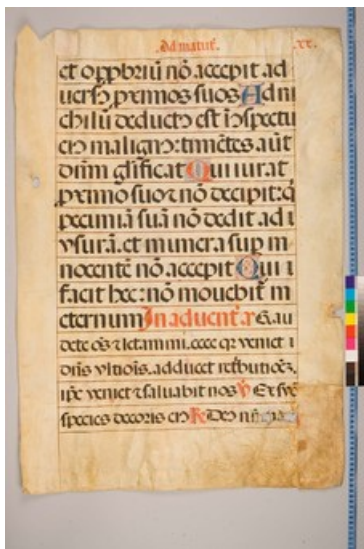 Ad matut̄.
.xx.
et opp̄briū nō accepit ad
uersꝰ p̱ximos suos Ad ni
chilū deductꝰ est ī ꝯspectu
eiꝰ malignꝰ: timētes aūt
dn̄m gl̄ificat Qui iurat
p̱ximo suo ⁊ nō decipit: q̄
pecuniā suā nō dedit ad
vsurā. et munera sup̄ in
nocentē nō accepit Qui
facit hec: nō mouebit̄ in
eternum In aduentꝰ
dete oēs ⁊ letamini. ecce q̄ veniet
dn̄s vltiōis. adducet ret͛butiōeȝ.
ip̄e veniet ⁊ saluabit nos ℣ Ex syō
species decoris eiꝰ ℟ Deꝰ nr̄